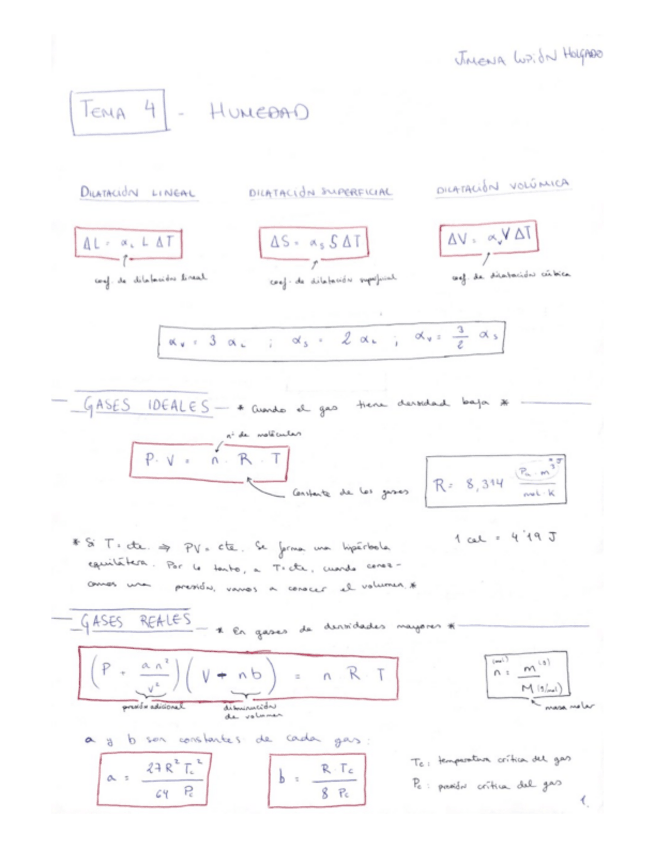 JIMENA LUPIÓN HOLGADO
TEMA 4 - HUMEDAD
DILATACIÓN LINEAL DILATACIÓN SUPERFICIAL DILATACIÓN VOLÚMICA
ΔL = α_L L ΔT ΔS = α_S S ΔT ΔV = α_V V ΔT
coef. de dilatación lineal coef. de dilatación superficial coef. de dilatación cúbica
α_V = 3 α_L ; α_S = 2 α_L ; α_V = 3/2 α_S
GASES IDEALES - * Cuando el gas tiene densidad baja *
nº de moléculas
P · V = n · R · T
Constante de los gases
R = 8,314 Pa · m³ / mol · K
J
* Si T = cte. ⇒ PV = cte. Se forma una hipérbola
equilátera. Por lo tanto, a T = cte, cuando conoz-
camos una presión, vamos a conocer el volumen *
1 cal = 4'19 J
GASES REALES - * En gases de densidades mayores *
(P + an²/V²)(V - nb) = n R T
presión adicional disminución
de volumen
n (mol) = m (g) / M (g/mol)
masa molar
a y b son constantes de cada gas:
a = 27R² Tc² / 64 Pc b = R Tc / 8 Pc
Tc: temperatura crítica del gas
Pc: presión crítica del gas
1.